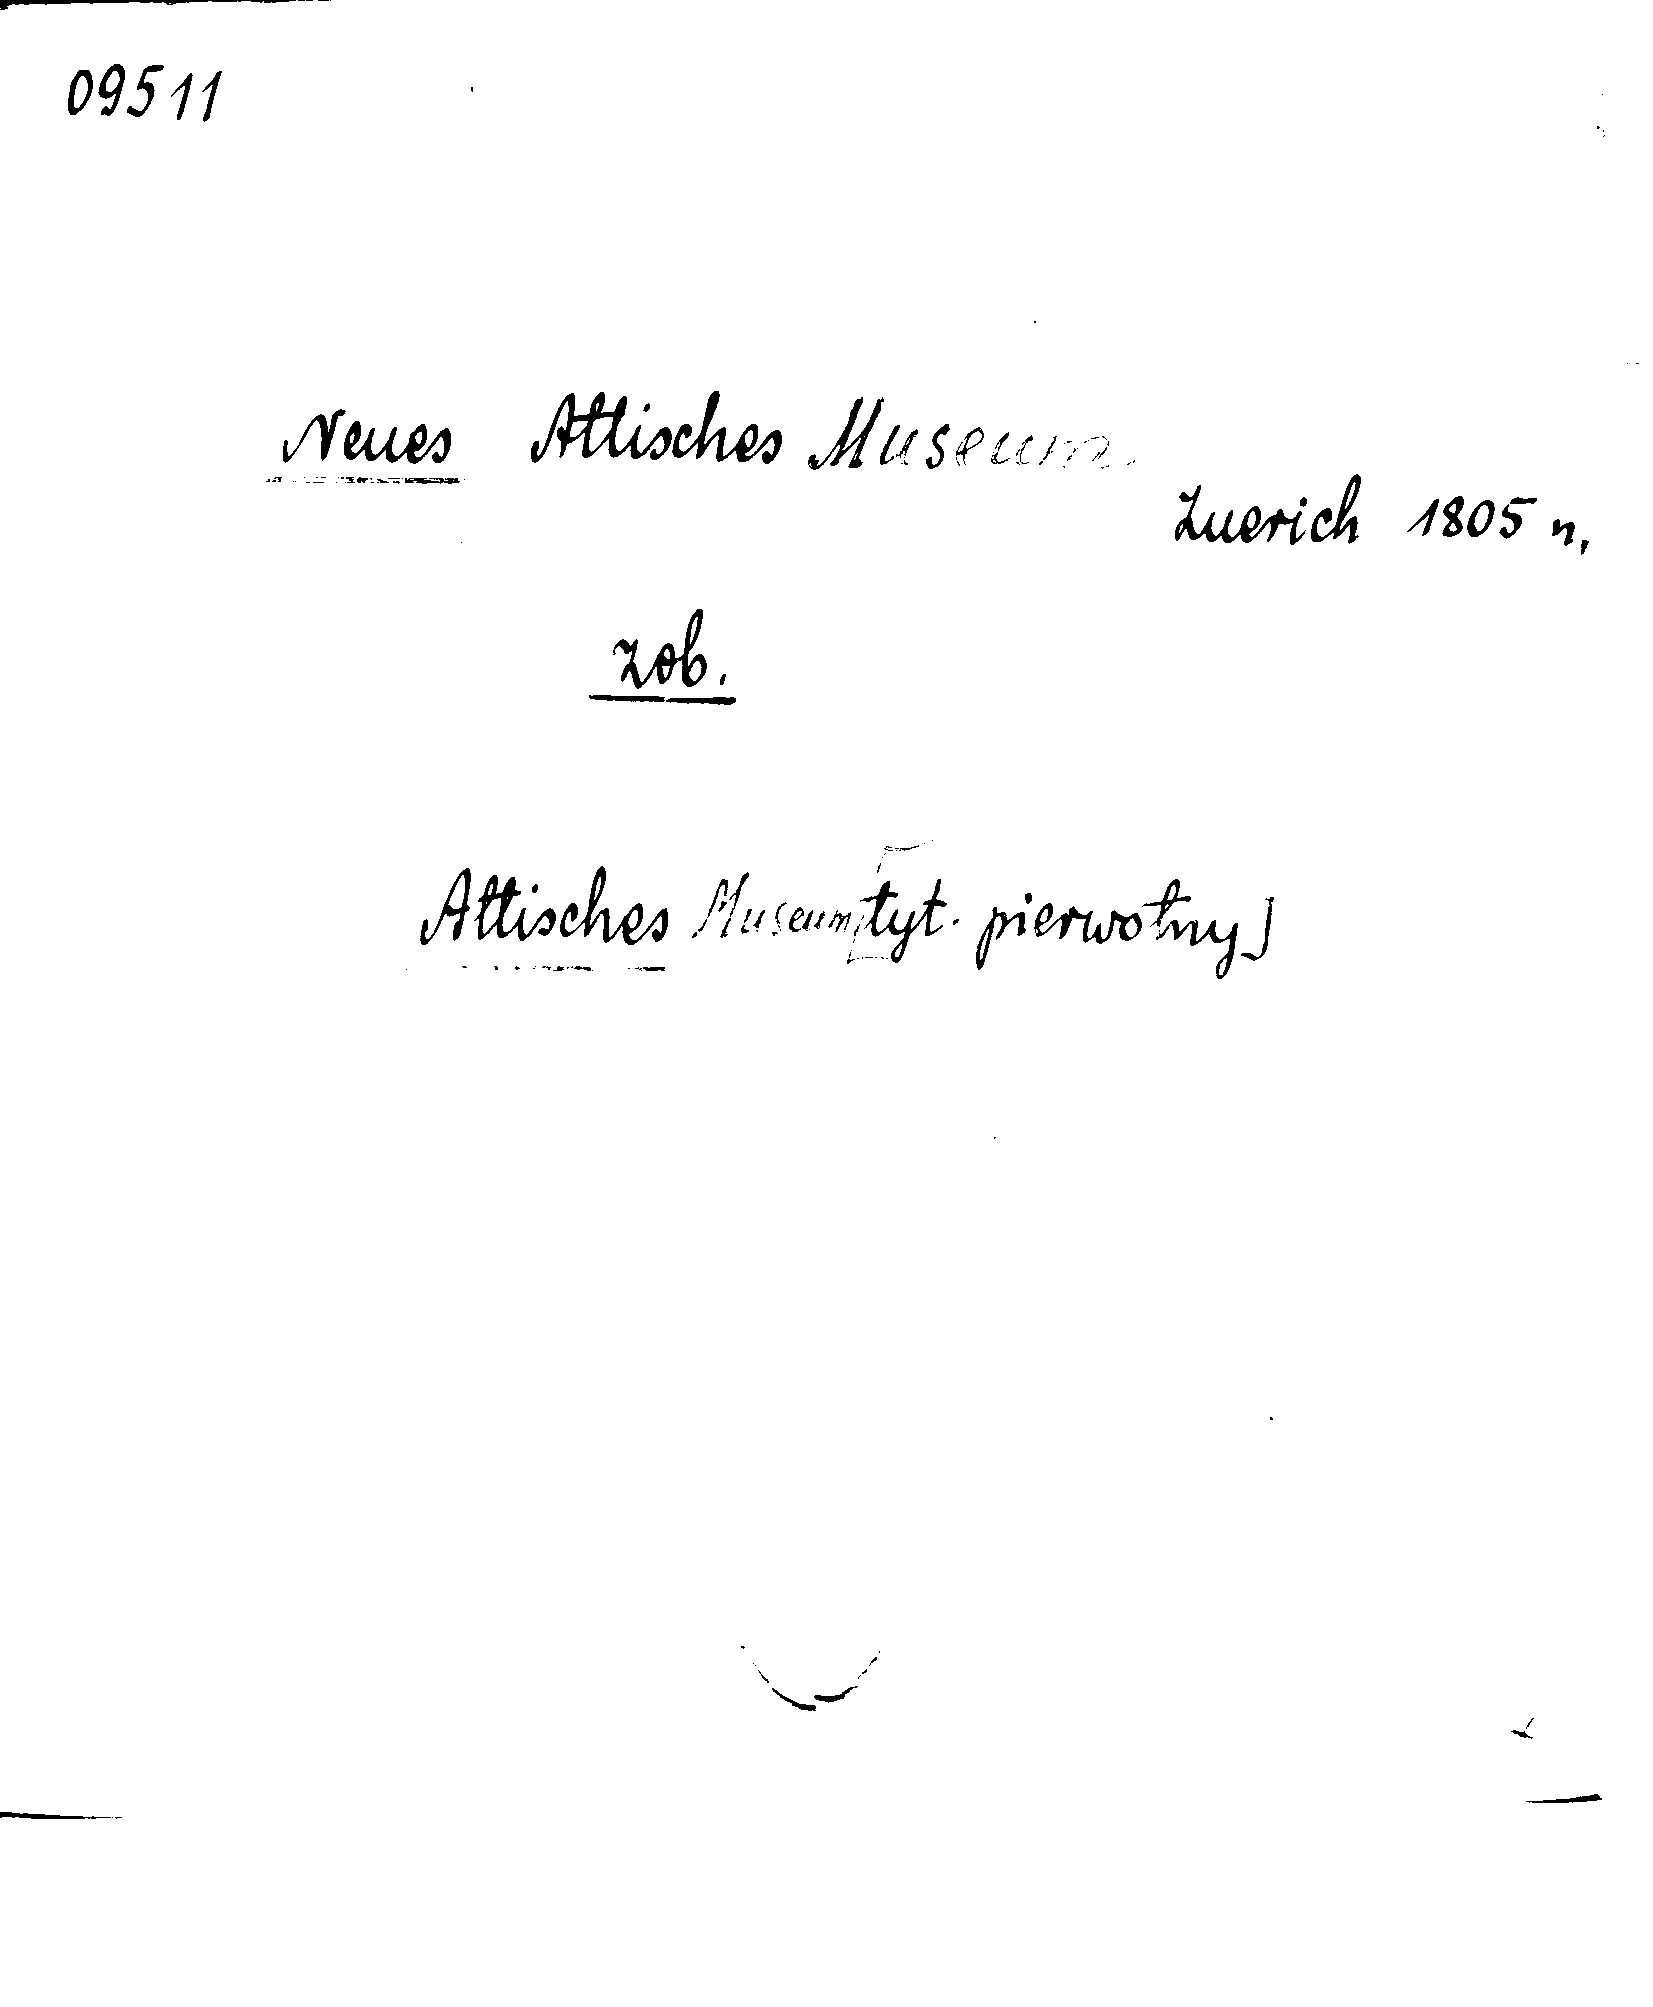 09511
Neues Attisches Museum.
Zuerich 1805 n.
zob.
Attisches Museum [tyt. pierwotny]